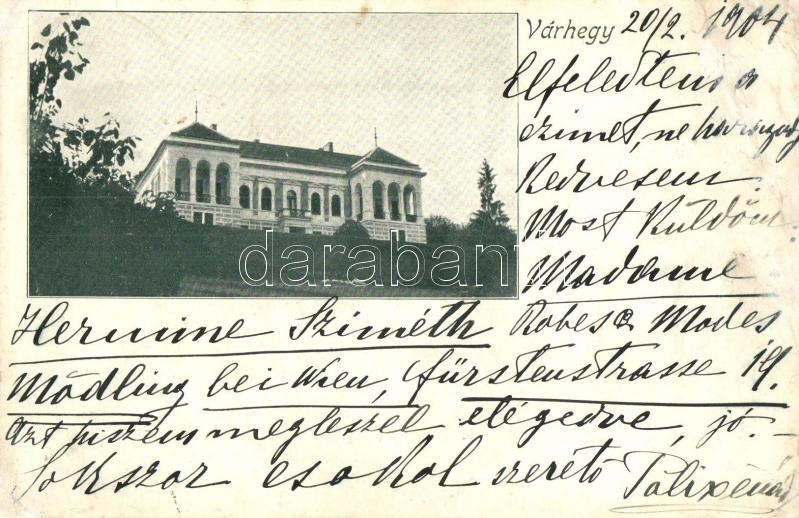 Várhegy 20/2. 1904
Elfeledtem a
czimet, ne haragudj
Kedvesem.
Most Küldöm.
Madame
darabanth
Hermine Sziméth Robes & Modes
Mödling bei Wien, fürstenstrasse 19.
Azt hiszem megleszel elégedve, jó.—
Sokszor csokol szerető Polixénád